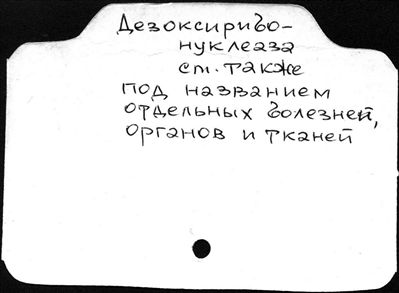 Дезоксирибо-
нуклеаза
см. также
под названием
отдельных болезней,
органов и тканей